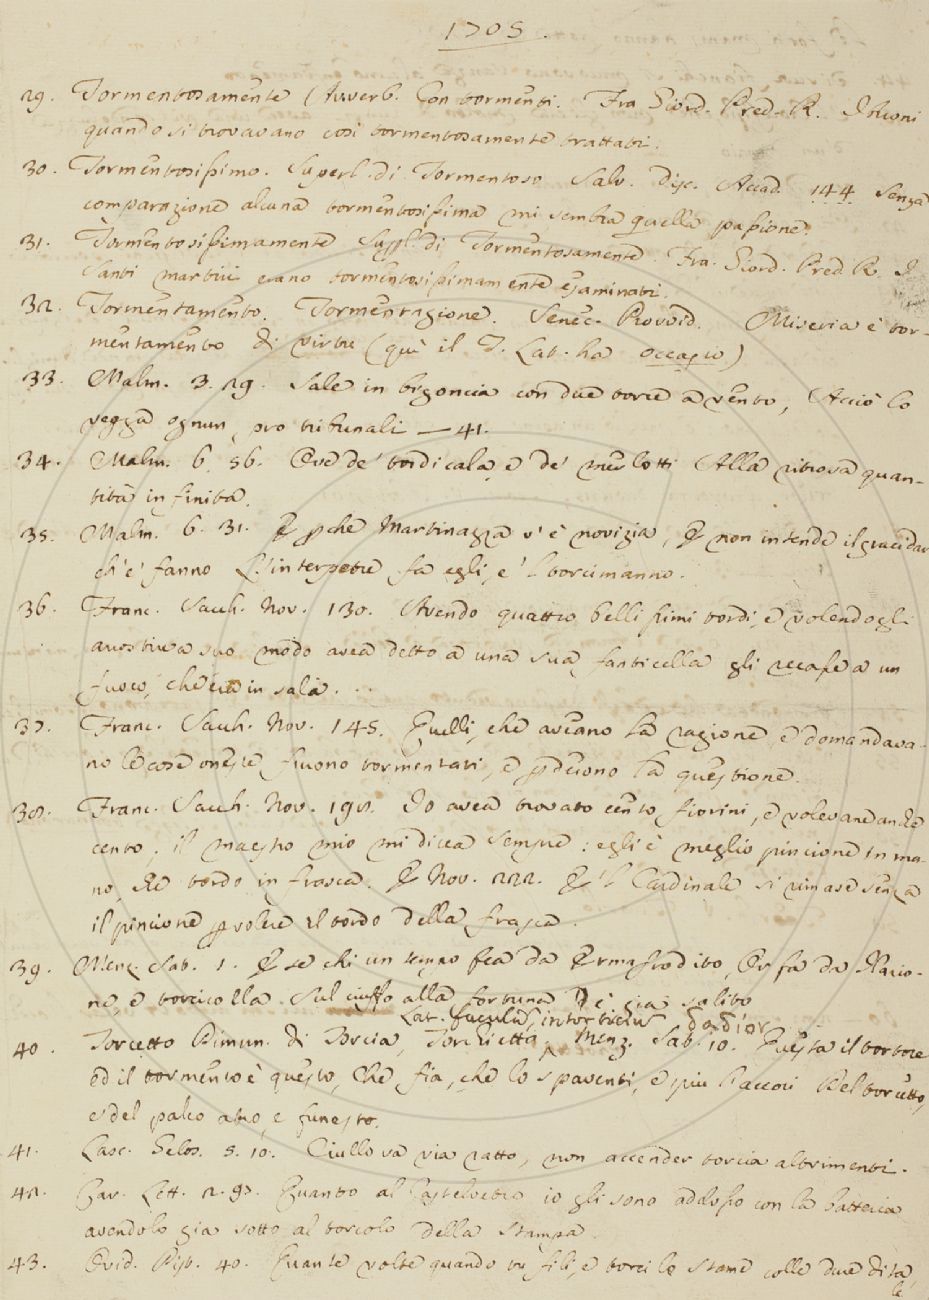 1705.
29. Tormentosamente Avverb. Con tormenti. Fra Giord. Pred. R.
quando si trovavano così tormentosamente trattati.
30. Tormentosissimo. Superl. di Tormentoso Salv. Disc. Accad. 144 Senza
comparazione alcuna tormentosissima mi sembra quella passione.
31. Tormentosissimamente Suppl. di Tormentosamente. Fra. Giord. Pred R. I
Santi martiri erano tormentosissimamente esaminati.
32. Tormentamento. Tormentazione. Senec. Provvid. Miseria è tor-
mentamento di virtù (qui il T. Lat. ha occasio)
33. Malm. 3. 29. Sale in bigoncia con due torce a vento, Acciò lo
vegga ognun, pro tribunali — 41.
34. Malm. 6. 56. Ove de' tordi cala, e de' merlotti Alla ritrova quan-
tità infinita.
35. Malm. 6. 31. E perche Martinazza v'è novizia, E non intende il gracidar
ch'e' fanno L'interpetre fa egli, e 'l torcimanno.
36. Franc. Sacch. Nov. 130. Avendo quattro bellissimi tordi, e volendogli
arrostire a suo modo avea detto a una sua fanticella gli recasse a un
fuoco, che era in sala.
37. Franc. Sacch. Nov. 145. Quelli, che aveano la ragione, e domandava-
no le cose oneste furono tormentati, e perderono la questione.
38. Franc. Sacch. Nov. 198. Io avea trovato cento fiorini, e volevane anche
cento; il maestro mio mi dicea sempre: egli è meglio pincione in ma-
no, che tordo in frasca. E Nov. 222. E 'l Cardinale si rimase senza
il pincione per volere il tordo della frasca.
39. Menz. Sat. 1. E se chi un tempo fea da Ermafrodito, Or fa da Narci-
no, e torcicolla. Sul ciuffo alla fortuna è già salito
Lat. facula, intorticium
40. Torcetto Dimin. di Torcia, Torchietta, Menz. Sat. 10. Questa il tortore
ed il tormento è questo, Che fia, che lo spaventi, e più l'accori Del torcetto,
e del palco atro, e funesto.
41. Lasc. Gelos. 5. 10. Ciullo va via ratto, non accender torcia altrimenti.
42. Car. Lett. 2. 93. Quanto al Castelvetro io gli sono addosso con la batteria
avendolo già sotto al torcolo della stampa.
43. Ovid. Pist. 40. Quante volte quando tu fili, e torci lo stame colle due dita,
le